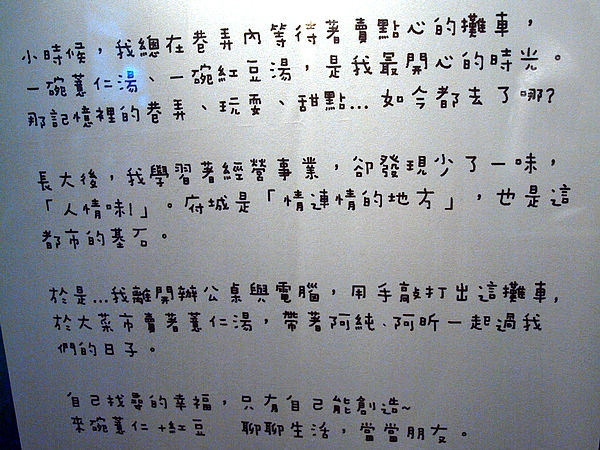 小時候，我總在巷弄內等待著賣點心的攤車，
一碗薏仁湯、一碗紅豆湯，是我最開心的時光。
那記憶裡的巷弄、玩耍、甜點... 如今都去了哪?
長大後，我學習著經營事業，卻發現少了一味，
「人情味!」。府城是「情連情的地方」，也是這
都市的基石。
於是...我離開辦公桌與電腦，用手敲打出這攤車，
於大菜市賣著薏仁湯，帶著阿純、阿昕一起過我
們的日子。
自己找尋的幸福，只有自己能創造~
來碗薏仁+紅豆 聊聊生活，當當朋友。